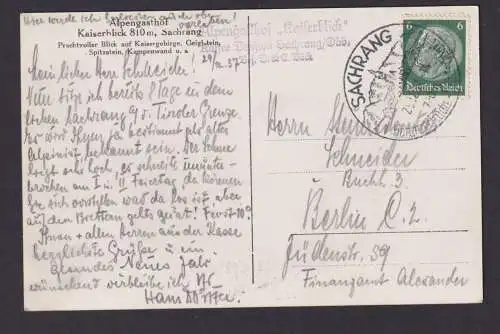 Hier werde ich
Alpengasthof
Kaiserblick 810 m, Sachrang
Prachtvoller Blick auf Kaisergebirge, Geigelstein,
Spitzstein, Kampenwand u. a.
29/12.37.
Mein lieber Herr Schneider!
Nun sitze ich bereits 8 Tage in dem
Sachrang a/d. Tiroler Grenze.
Es wird Ihnen ja bestimmt als alter
Alpinist bekannt sein. Der Schnee
liegt sehr hoch, es schneite ununter-
brochen am I u. II Feiertag, da können
Sie sich vorstellen was da los ist, aber
auf den Brettern gehts gut! Frost 10°
Ihnen + allen Herren aus der Kasse
herzlichste Grüße u. ein
gesundes Neues Jahr
wünschend verbleibe ich Ihr
Alpengasthof „Kaiserblick"
SACHRANG
6
Deutsches Reich
Herrn
Schneider
Buchh. 3
Berlin C. 2.
Jüdenstr. 59
Finanzamt Alexander